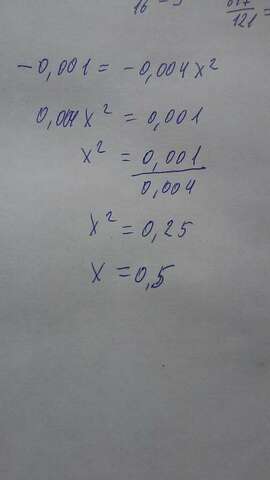 16 - 5
121 =
-0,001 = -0,004x²
0,004x² = 0,001
x² = 0,001
0,004
x² = 0,25
x = 0,5